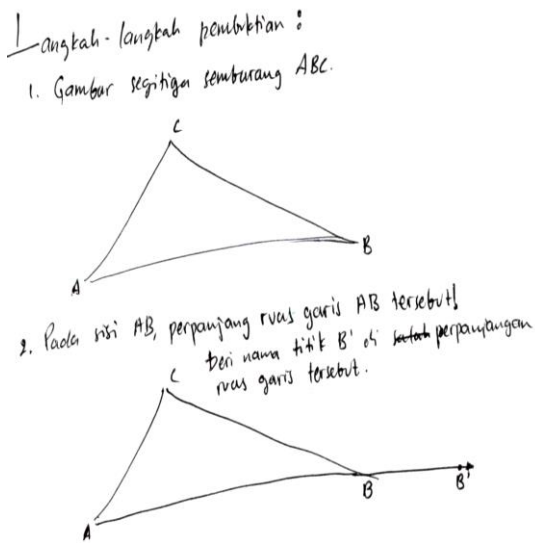 Langkah-langkah pembuktian :
1. Gambar segitiga sembarang ABC.
C
A
B
2. Pada sisi AB, perpanjang ruas garis AB tersebut!
beri nama titik B' di perpanjangan
ruas garis tersebut.
C
A
B
B'